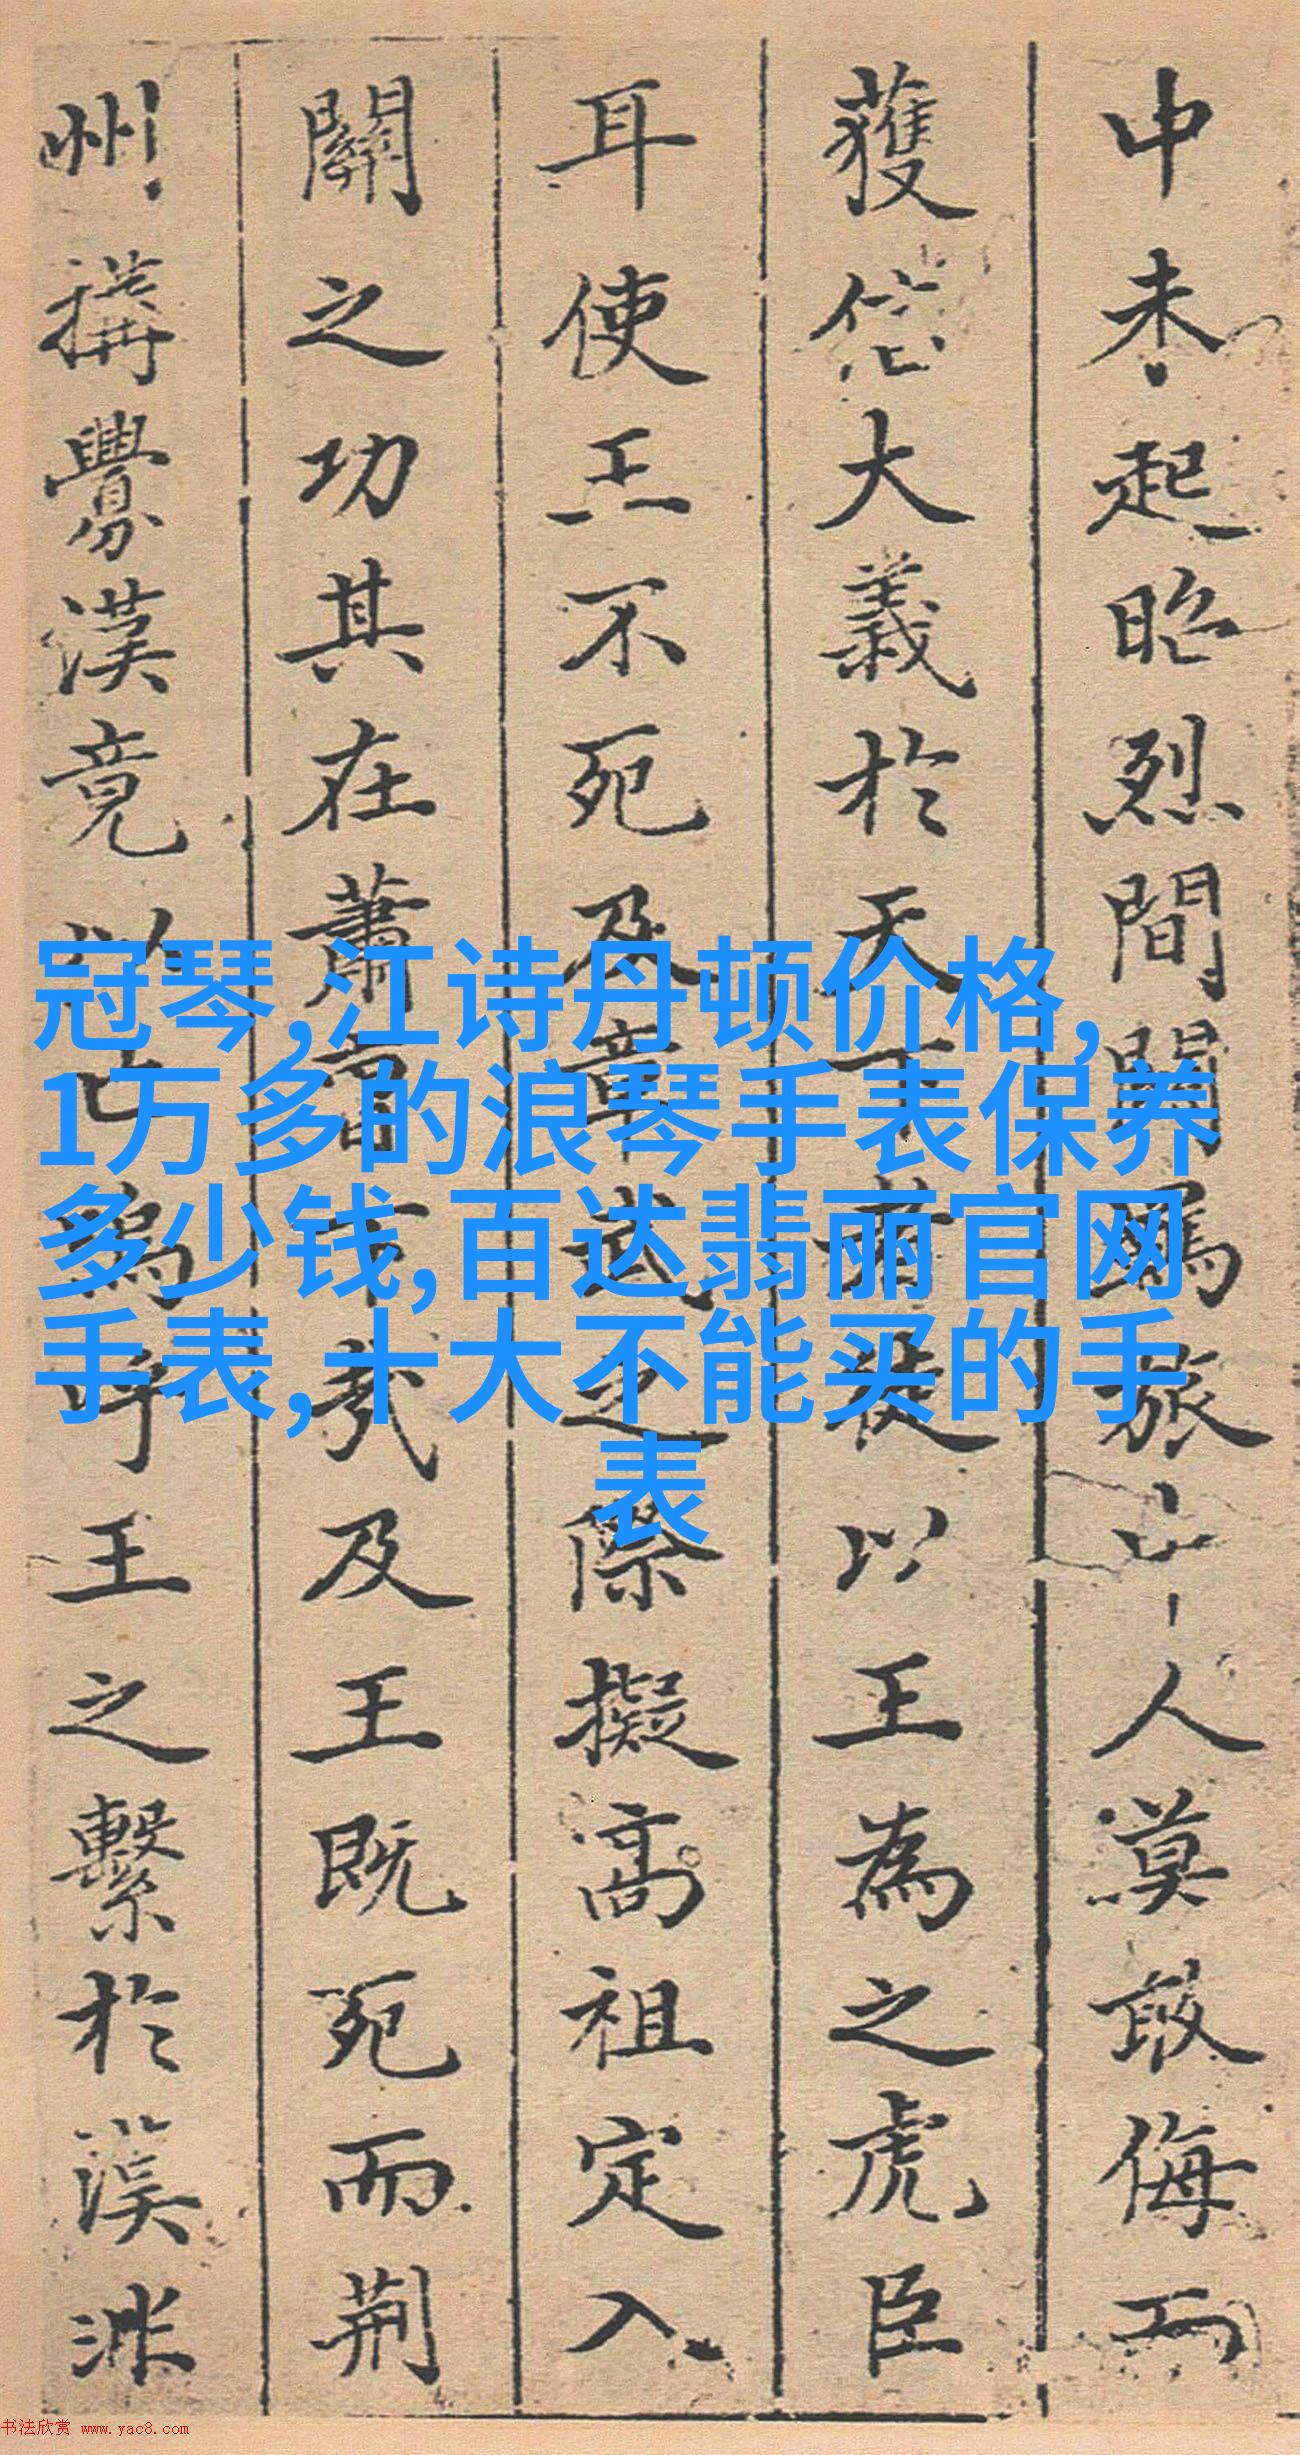 中未起昭烈間關羈旅山人莫敢侮而
獲信大義於天下者徒以王為之虎臣
耳使王不死及章武之際擬高祖定入
關之功其在蕭曹下哉及王既死而荆
州搆釁漢竟以亡烏呼王之繫於漢非
冠琴,江诗丹顿价格,
1万多的浪琴手表保养
多少钱,百达翡丽官网
手表,十大不能买的手
表
书法欣赏 www.yac8.com